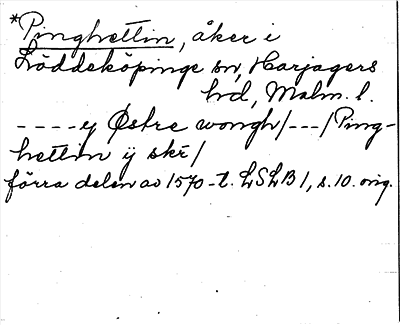 *Pinghettin, åker i
Löddeköpinge sn, Harjagers
hd, Malm. l.
----ey Østre wongh/---/Ping-
hettin ÿ skr/
förra delen av 1570-t. LSLB 1, s. 10. orig.